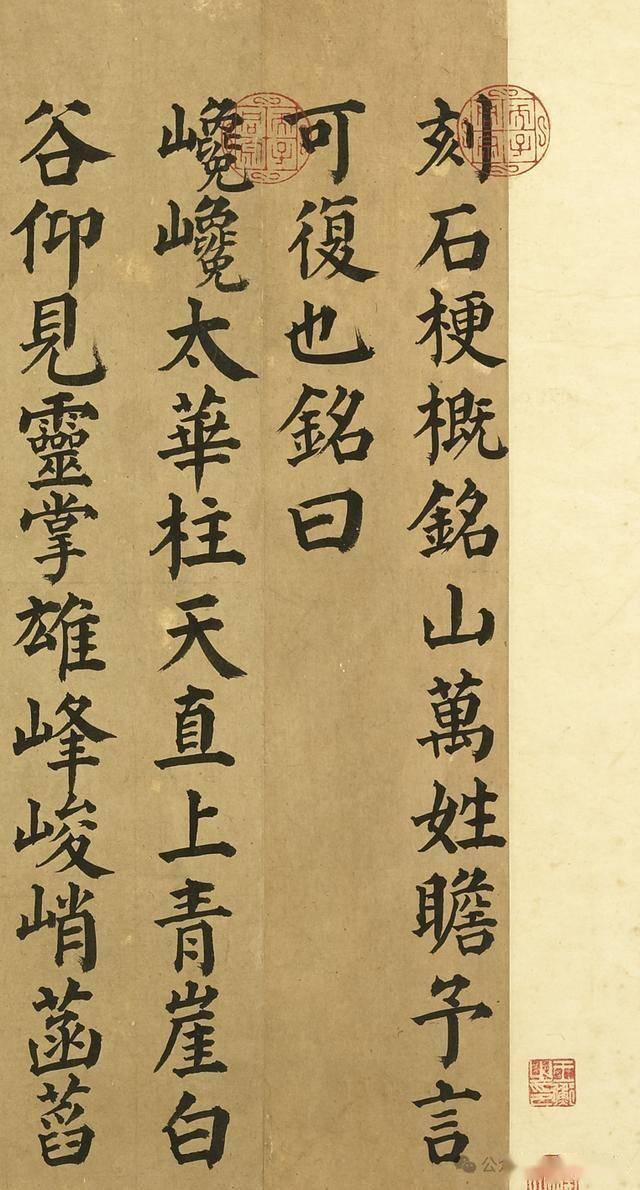 刻石梗概銘山萬姓瞻予言
可復也銘曰
巉巉太華柱天直上青崖白
谷仰見靈掌雄峰峻峭菡萏
公